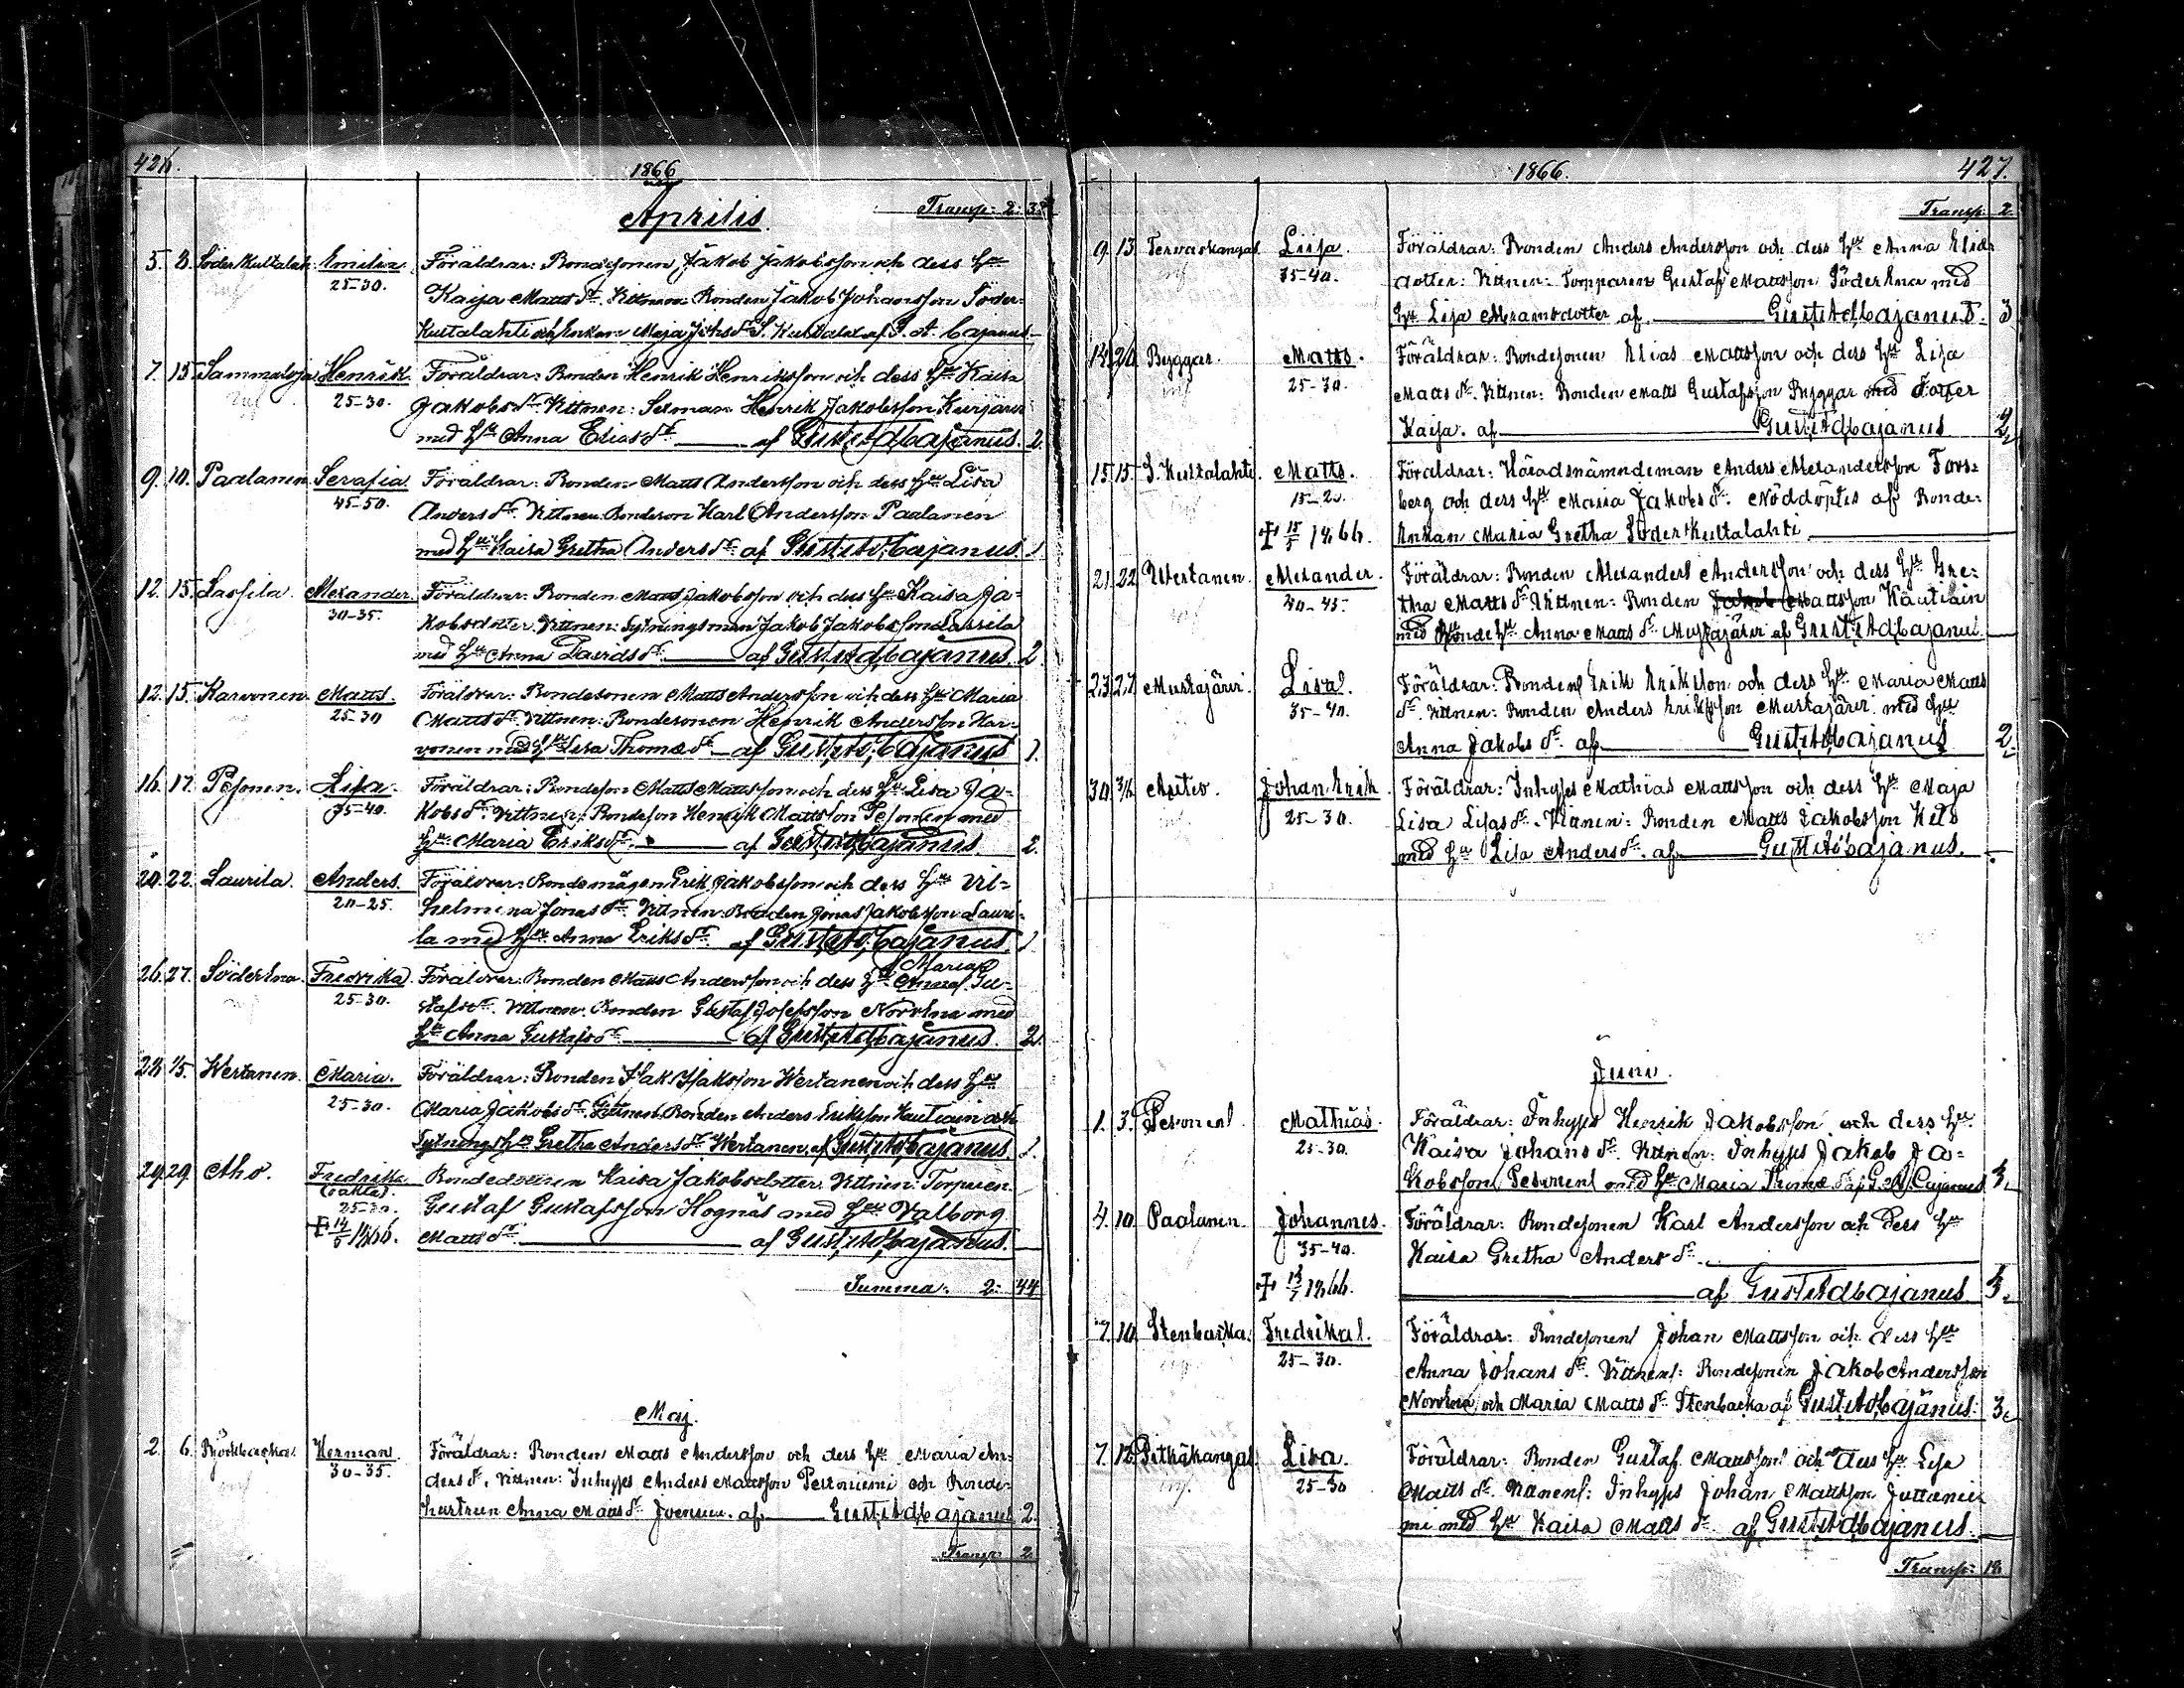 426.
1866
Aprilis
Transp: 2: 3
5. 8. Söderkultalah. Emilia Föräldrar: Bondesonen Jakob Jakobsson och dess hu
25-30. Kaija Matts dr. Vittnen: Bonden Jakob Johansson Söder-
Kultalahti och Maja S. Kultalax af G. A. Cajanus
7. 15. Sammaloja Henrik Föräldrar: Bonden Henrik Henriksson och dess hu Kaisa
25-30. Jakobs dr. Vittnen: Henrik Jakobsson Kurjärvi
med hu Anna Elias dr. af Gust. Ad. Cajanus. 2
9. 10. Paalanen Serafia Föräldrar: Bonden Matts Andersson och dess hu Lisa
45-50. Anders dr. Vittnen: Bondeson Karl Andersson Paalanen
med hu Kaisa Gretha Anders dr. af Gust. Ad. Cajanus.
12. 15. Lassila Alexander Föräldrar: Bonden Matts Jakobsson och dess hu Kaisa Ja-
30-35. kobsdotter. Vittnen: Sytningsman Jakob Jakobsson Lassila
med hu Anna Davids dr. af Gust. Ad. Cajanus. 2
12. 15. Karvonen Matts. Föräldrar: Bondesonen Matts Andersson och dess hu Maria
25-30 Matts dr. Vittnen: Bondesonen Henrik Andersson Kar-
vonen med hu Lisa Thomæ dr. af Gust. Ad. Cajanus 1.
16. 17. Pesonen. Lisa. Föräldrar: Bondeson Matts Mattsson och dess hu Lisa Ja-
35-40. kobs dr. Vittnen: Bondeson Henrik Mattsson Pesonen med
hu Maria Eriks dr. af Gust. Ad. Cajanus. 2.
20. 22. Laurila. Anders. Föräldrar: Bondemågen Erik Jakobsson och dess hu Vil-
20-25. helmina Jonas dr. Vittnen: Bonden Jonas Jakobsson Lauri-
la med hu Anna Eriks dr. af Gust. Ad. Cajanus
Maria
26. 27. Söderkna. Fredrika. Föräldrar: Bonden Matts Andersson och dess hu Anna Gu-
25-30. stafs dr. Vittnen: Bonden Gustaf Josefsson Norrkna med
hu Anna Gustafs dr. af Gust. Ad. Cajanus. 2.
28. 1/5. Wertanen. Maria. Föräldrar: Bonden Isak Isaksson Wertanen och dess hu
25-30. Maria Jakobs dr. Vittnen: Bonden Anders Eriksson Kautiain och
Sytnings hu Gretha Anders dr. Wertanen, af Gust. Ad. Cajanus.
29. 29. Aho. Fredrika Bondedottren Kaisa Jakobsdotter. Vittnen: Torparen
(oäkta).
25-30. Gustaf Gustafsson Hognäs med hu Valborg
† 14/5 1866. Matts dr. af Gust. Ad. Cajanus.
Summa. 2: 44
Maj.
2. 6. Björkbacka. Herman. Föräldrar: Bonden Matts Andersson och dess hu Maria An-
30-35. ders dr. Vittnen: Inhyses Anders Mattsson Pesoniemi och Bonde-
hustrun Anna Matts dr. af Gust. Ad. Cajanus 2.
Transp: 2
1866.
427.
Transp: 2
9. 13. Tervaskangas Liisa. Föräldrar: Bonden Anders Andersson och dess hu Anna Elias
35-40. dotter: Vittnen: Torpparen Gustaf Mattsson Söderkna med
hu Lisa Abramsdotter af Gust. Ad. Cajanus. 3
14. 20. Byggar. Matts. Föräldrar: Bondesonen Elias Mattsson och dess hu Lisa
25-30. Matts dr. Vittnen: Bonden Matts Gustafsson Byggar med dotter
Kaisa. af Gust. Ad. Cajanus 2
15. 15. S. Kultalahti. Matts. Föräldrar: Häradsnämndeman Anders Alexandersson Fors-
15-20. berg och dess hu Maria Jakobs dr. Nöddöptes af Bonde-
† 15/5 1866. Enkan Maria Gretha Söderkultalahti
21. 22. Wertanen. Alexander. Föräldrar: Bonden Alexander Andersson och dess hu Gre-
40-45. tha Matts dr. Vittnen: Bonden Jakob Mattsson Kautiain
med Bonde hu Anna Matts dr. Mustajärvi af Gust. Ad. Cajanus.
23. 27. Mustajärvi. Lisa. Föräldrar: Bonden Erik Eriksson och dess hu Maria Matts
35-40. dr. Vittnen: Bonden Anders Eriksson Mustajärvi med hu
Anna Jakobs dr. af Gust. Ad. Cajanus 2.
30. 31. Autio. Johan Erik. Föräldrar: Inhyses Mathias Mattsson och dess hu Maja
25-30. Lisa Lisas dr. Vittnen: Bonden Matts Jakobsson
med hu Lisa Anders dr. af Gust. Ad. Cajanus.
Juni.
1. 3. Pesonen. Mathias. Föräldrar: Inhyses Henrik Jakobsson och dess hu
25-30. Kaisa Johans dr. Vittnen: Inhyses Jakob Ja-
kobsson Pesonen med hu Maria Thomæ dr. af G. A. Cajanus 3.
4. 10. Paalanen Johannes. Föräldrar: Bondesonen Karl Andersson och dess hu
35-40. Kaisa Gretha Anders dr.
† 13/7 1866. af Gust. Ad. Cajanus 3.
7. 10. Stenbacka. Fredrika. Föräldrar: Bondesonen Johan Mattsson och dess hu
25-30. Anna Johans dr. Vittnen: Bondesonen Jakob Andersson
Norrkna och Maria Matts dr. Stenbacka af Gust. Ad. Cajanus. 3.
7. 12. Pitkäkangas Lisa. Föräldrar: Bonden Gustaf Mattsson och dess hu Lisa
25-30 Matts dr. Vittnen: Inhyses Johan Mattsson Juttunie-
mi med hu Kaisa Matts dr. af Gust. Ad. Cajanus.
Transp: 18